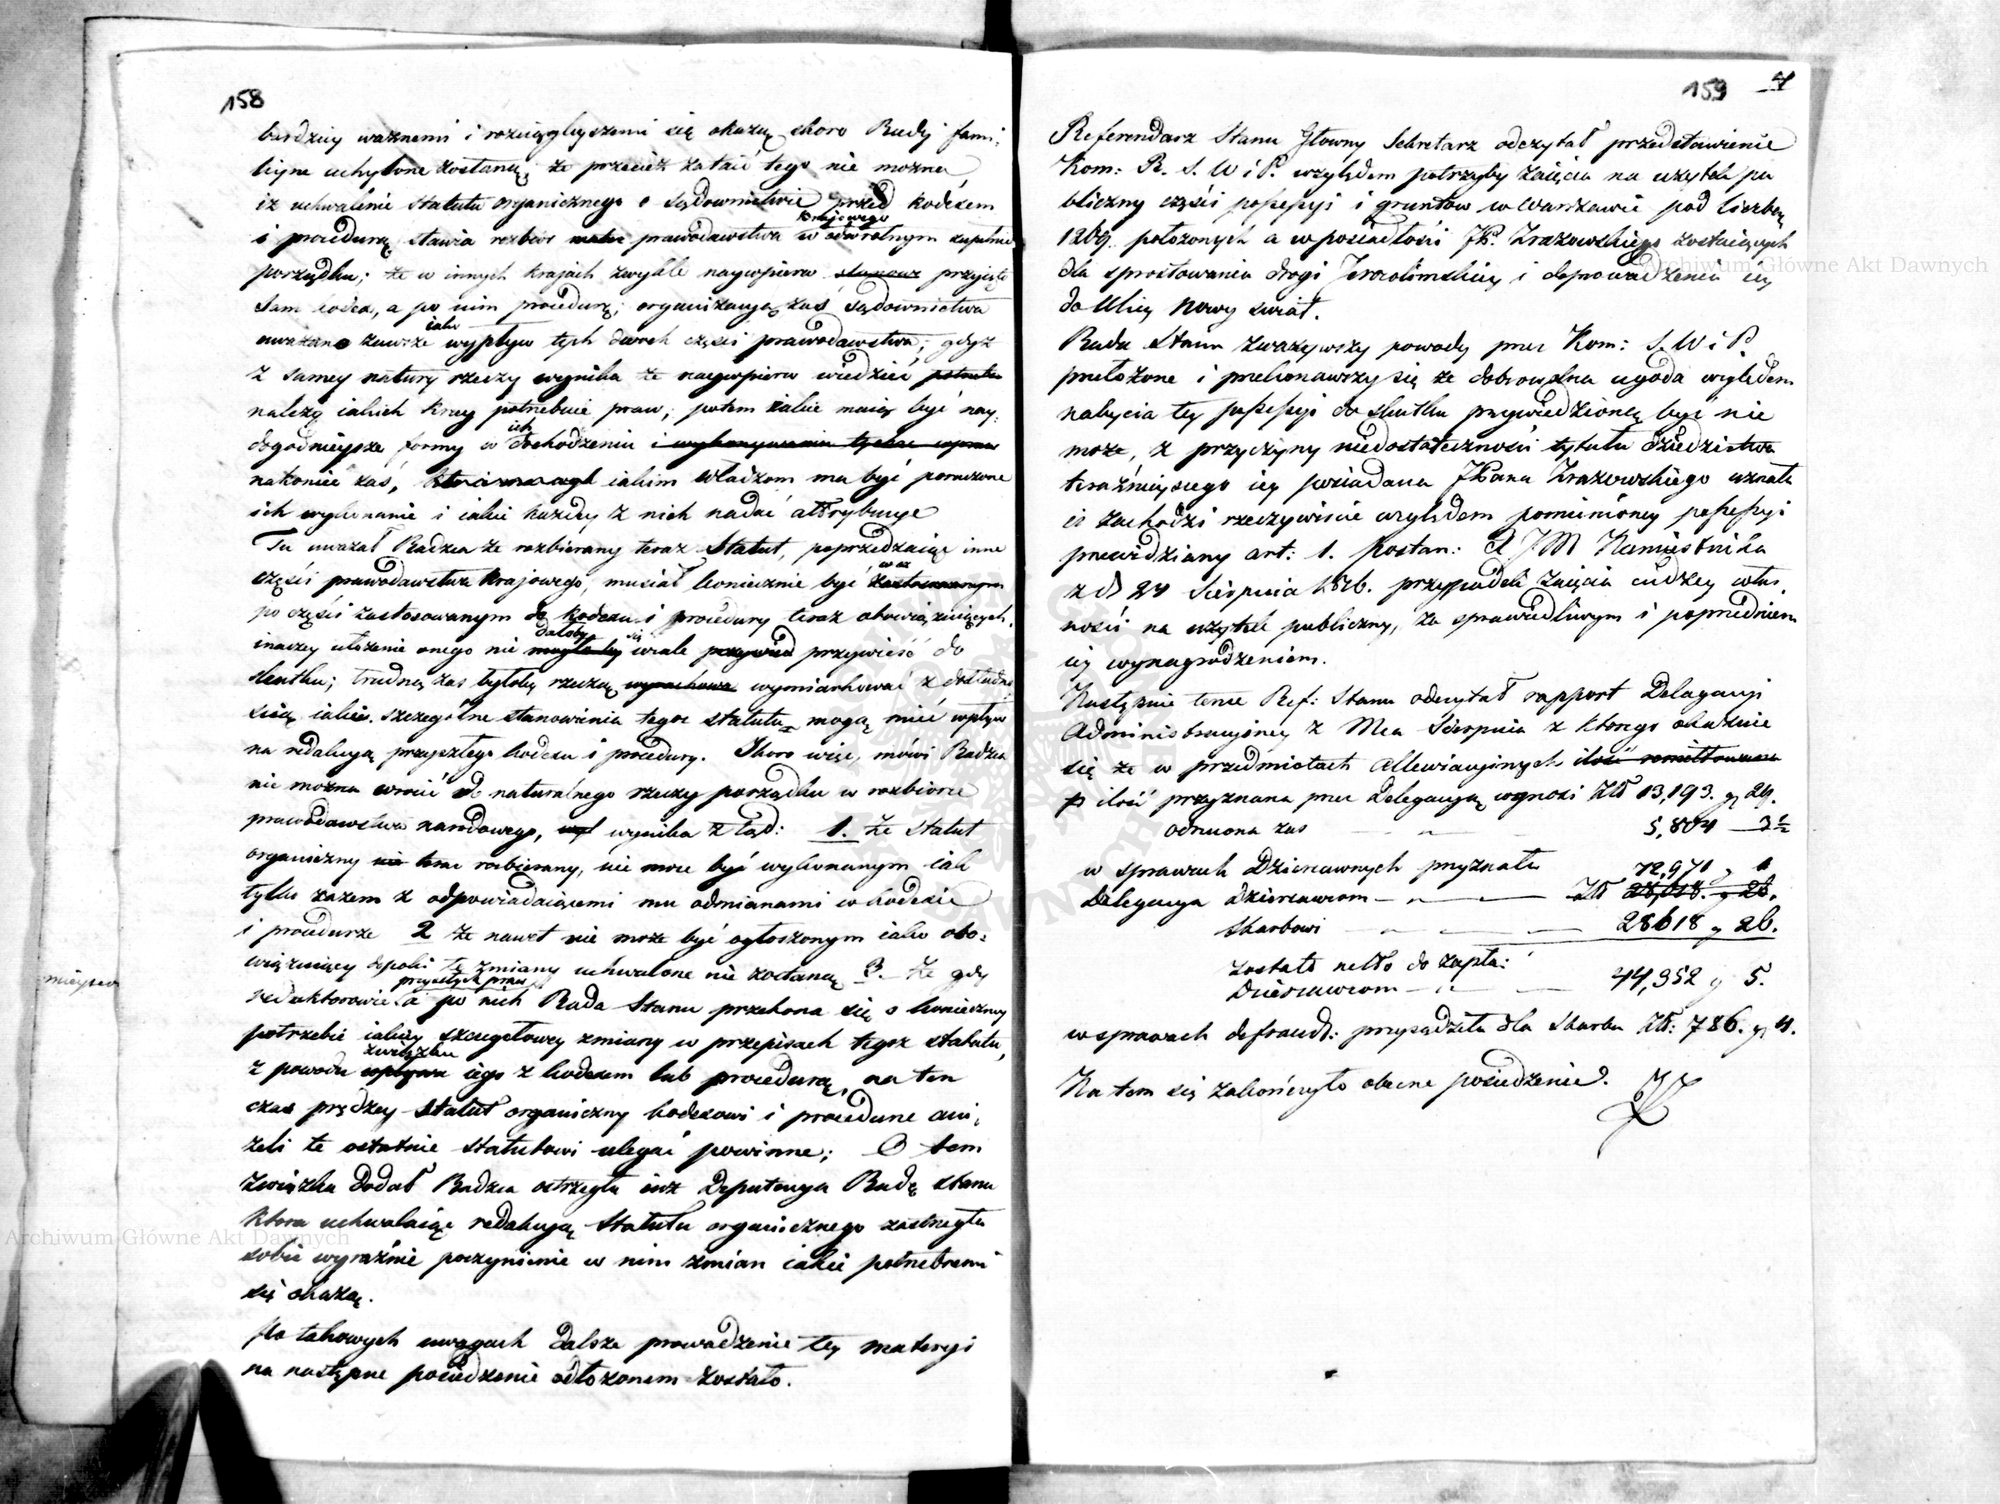 158
bardziey ważnemi i rozciągleyszemi się okażą skoro Rady fami-
liyne uchylone zostaną, że przecież zataić tego nie można
iż uchwalenie statutu organicznego o sądownictwie przed kodexem
krajowego
i procedurą stawia rozbiór prawodawstwa w odwrotnym zupełnie
porządku; że w innych krajach zwykle naypierw stanowi przyjęto
sam kodex, a po nim procedurę; organizacyą zaś sądownictwa
iako
uważano zawsze wypływ tych dwóch części prawodawstwa; gdyż
z samey natury rzeczy wynika że naypierw wiedzieć potrzeba
należy iakich kray potrzebuie praw; potem iakie maią być nay-
ich
dogodnieysze formy w dochodzeniu i wykonywaniu tychże
nakoniec zaś, iakim Władzom ma być poruczone
ich wykonanie i iakie każdey z nich nadać attrybucye
Tu uważał Radzca że rozbierany teraz Statut, poprzedzaiąc inne
części prawodawstwa krajowego, musiał koniecznie być zastosowanym
po części zastosowanym do kodexu i procedury teraz obowiązuiących,
dałoby się
inaczey ułożenie onego nie mogło by wcale przywieść do
skutku; trudną zaś byłoby rzeczą wymiarkować z dokładno-
ścią iakie szczególne stanowienia tegoż statutu mogą mieć wpływ
na redakcyą przyszłego kodexu i procedury. Skoro więc, mówi Radzca
nie można wrócić do naturalnego rzeczy porządku w rozbiorze
prawodawstwa narodowego, wynika z tąd: 1. że statut
organiczny teraz rozbierany, nie może być wykonanym iak
tylko razem z odpowiadaiącemi mu odmianami w kodexie
i procedurze 2 że nawet nie może być ogłoszonym iako obo-
wiązuiący dopóki te zmiany uchwalone nie zostaną 3. że gdy
przyszłych praw
redaktorowie a po nich Rada Stanu przekona się o konieczney
potrzebie iakiey szczegółowey zmiany w przepisach tegoż statutu,
związku
z powodu wpływu iego z kodexem lub procedurą, na ten
czas prędzey statut organiczny kodexowi i procedurze ani-
żeli te ostatnie statutowi ulegać powinne; O tem
związku dodał Radzca ostrzegła iuż Deputacya Radę Stanu
która uchwalaiąc redakcyą Statutu organicznego zastrzegła
sobie wyraźnie poczynienie w nim zmian iakie potrzebnemi
się okażą.
Po takowych uwagach dalsze prowadzenie tey materyi
na następne posiedzenie odłożonem zostało.
mieysca
159 4
Referendarz Stanu Główny Sekretarz odczytał przedstawienie
Kom: R. S. W i P. względem potrzeby zaięcia na użytek pu
bliczny części possessyi i gruntów w Warszawie pod liczbą
1269. położonych a w posiadłości JP. Zrazowskiego zostaiących
dla sprostowania drogi Jerozolimskiey i doprowadzenia iey
do Ulicy Nowy świat.
Rada Stanu zważywszy powody przez Kom: S. W i P.
przełożone i przekonawszy się że dobrowolna ugoda względem
nabycia tey possessyi do skutku przywiedzioną być nie
może, z przyczyny niedostateczności tytułu dziedzictwa
teraźnieyszego iey posiadacza JPana Zrazowskiego uznała
iż zachodzi rzeczywiście względem pomienioney possessyi
przewidziany art: 1. Postan: X J M Namiestnika
z d 24 Sierpnia 1826. przypadek zaięcia cudzey włas-
ności na użytek publiczny, za sprawiedliwym i poprzedniem
iey wynagrodzeniem.
Następnie tenże Ref: Stanu odczytał rapport Delegacyi
Administracyiney z Mca Sierpnia z którego okazuie
się że w przedmiotach allewiacyinych ilość
ilość przyznana przez Delegacyą wynosi Zł 13,193. g 29.
odrzucona zaś — " — 5,804 — 3½
w sprawach Dzierżawnych przyznała 72,971 g 1
Delegacya dzierżawcom — " — Zł 28,618. g 26.
Skarbowi — " — 28618 g 26.
Zostało netto do zapła:
Dzierżawcom — " — 44,352 g 5.
w sprawach defraud: przysądziła dla Skarbu Zł: 786. g 4.
Na tem się zakończyło obecne posiedzenie.
Archiwum Główne Akt Dawnych
Archiwum Główne Akt Dawnych